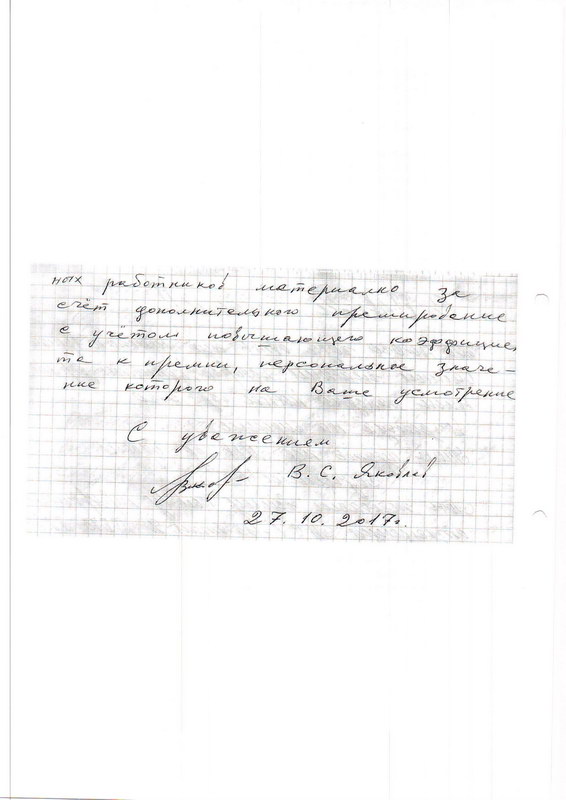 ных работников материално за
счёт дополнительного премирование
с учётом повышающего коэффицие,
та к премии, персональные значе-
ние которого на Ваше усмотрение
С уважением
В. С. Яковлев
27. 10. 2017г.